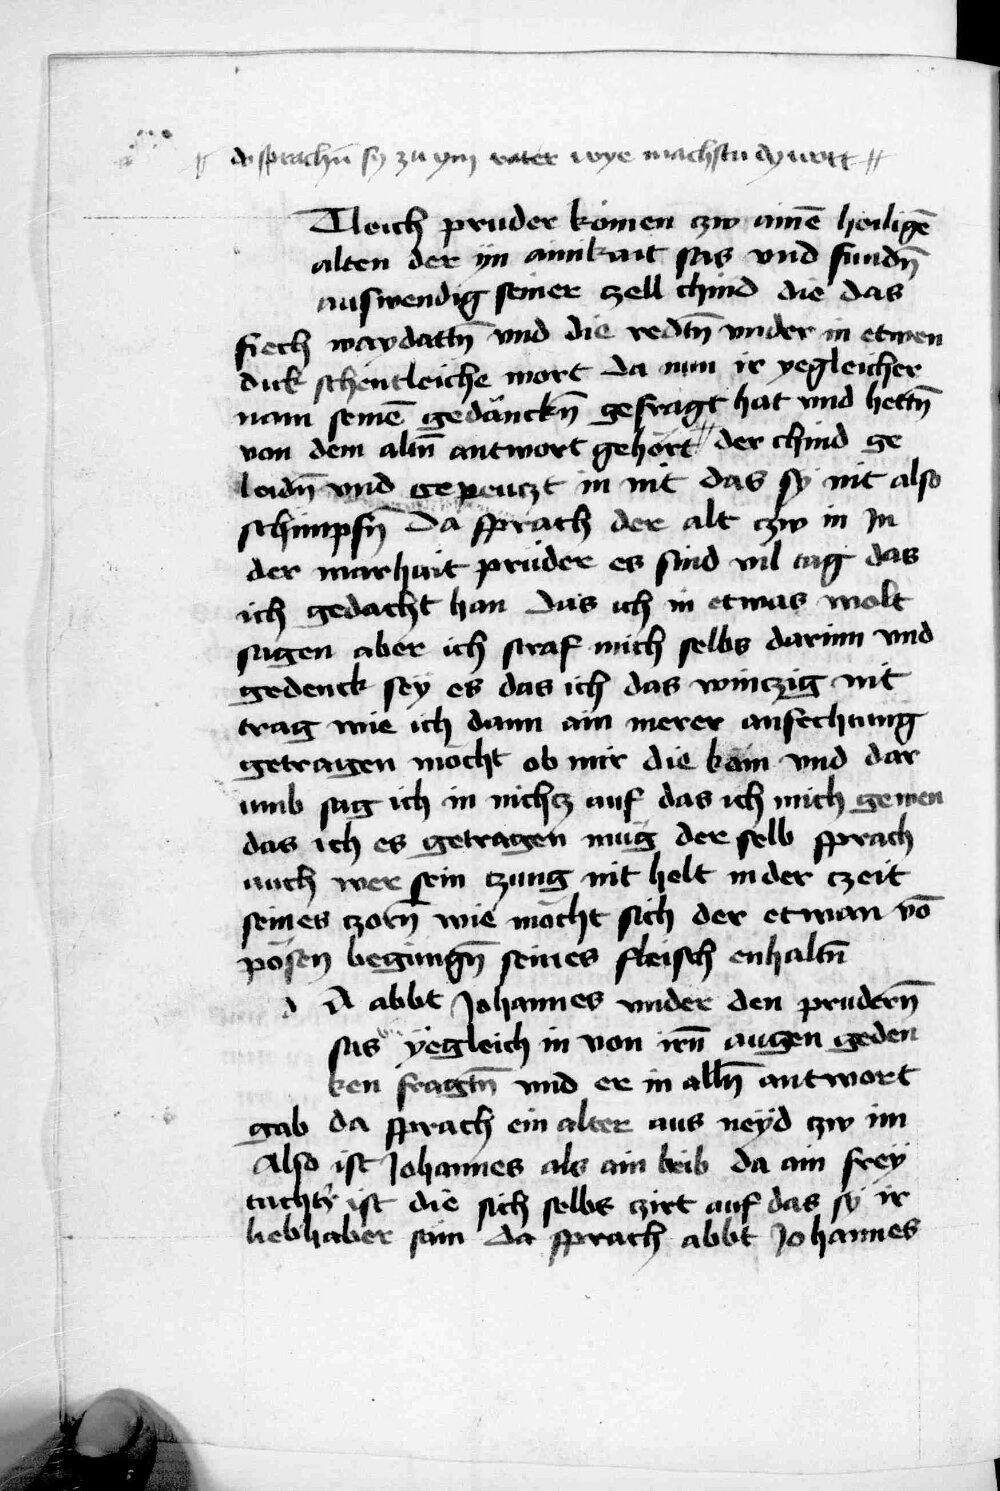 do sprachñ sy zu ym vater wye machstu dy wort
Tleich pruder kömen czw ainē heiligē
alten der yn ainikait sas vnd fundñ
auswendig seiner czell chind die das
fiech waydattñ vnd die redtñ vnder in etwen
dick schentleiche wort Da nun ir yegleicher
nam seinē gedänckñ gefragt hat vnd hettñ
von dem altñ antwort gehört der chind ge
leidñ vnd gepeuczt in nit das sy nit also
schimpfñ Da sprach der alt czw in In
der warhait prüder es sind vil tag das
ich gedacht han Das ich in etwas wolt
sagen aber ich straf mich selbs darinn vnd
gedenck sey es das ich das winczig nit
trag wie ich dann ain merer anfechtung
getragen möcht ob mir die käm vnd dar
umb sag ich in nichcz auf das ich mich gewen
das ich es getragen mug der selb sprach
auch wer sein czung nit helt in der czeit
seines czorñ wie möcht sich der etwan vō
pösen begirungñ seines fleisch enhaltñ
d A abbt Johannes vnder den prudern̄
sas yegleich in von irñ augen geden
ken fragtñ vnd er in allñ antwort
gab da sprach ein alter aus neyd czw im
Also ist Johannes als ain beib da ain frey
tucht ist die sich selbs czirt auf das sy ir
liebhaber säm Da sprach abbt Johannes